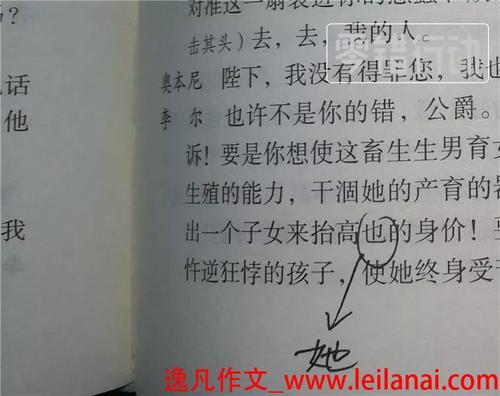 对准这一扇
零错行动
吗?
击其头)去,去,我的人。
话
奥本尼 陛下,我没有得罪您,我也
他
李 尔 也许不是你的错,公爵。
诉!要是你想使这畜生生男育女
生殖的能力,干涸她的产育的器
我
出一个子女来抬高也的身价!
忤逆狂悖的孩子,使她终身受
她
逸凡作文_www.leilanai.com